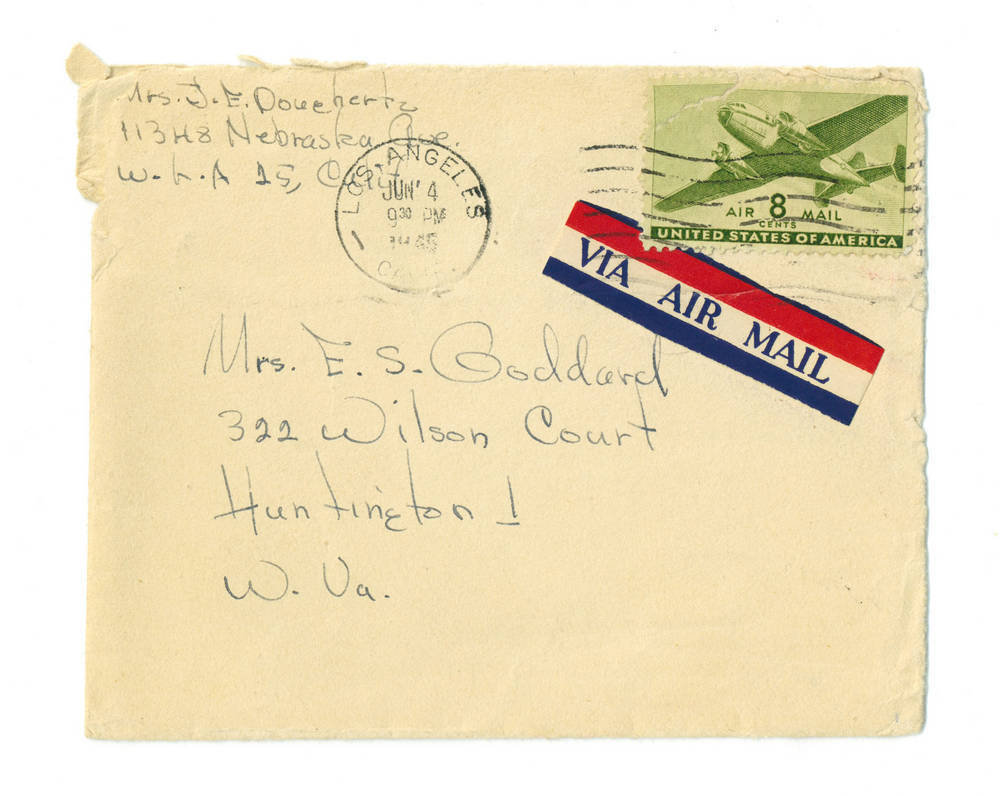 Mrs. J. E. Dougherty
11348 Nebraska Ave.
W. L. A 25, Calif.
LOS ANGELES
JUN 4
9 30 PM
1945
CALIF.
AIR 8 MAIL
CENTS
UNITED STATES OF AMERICA
VIA AIR MAIL
Mrs. E. S. Goddard
322 Wilson Court
Huntington 1
W. Va.